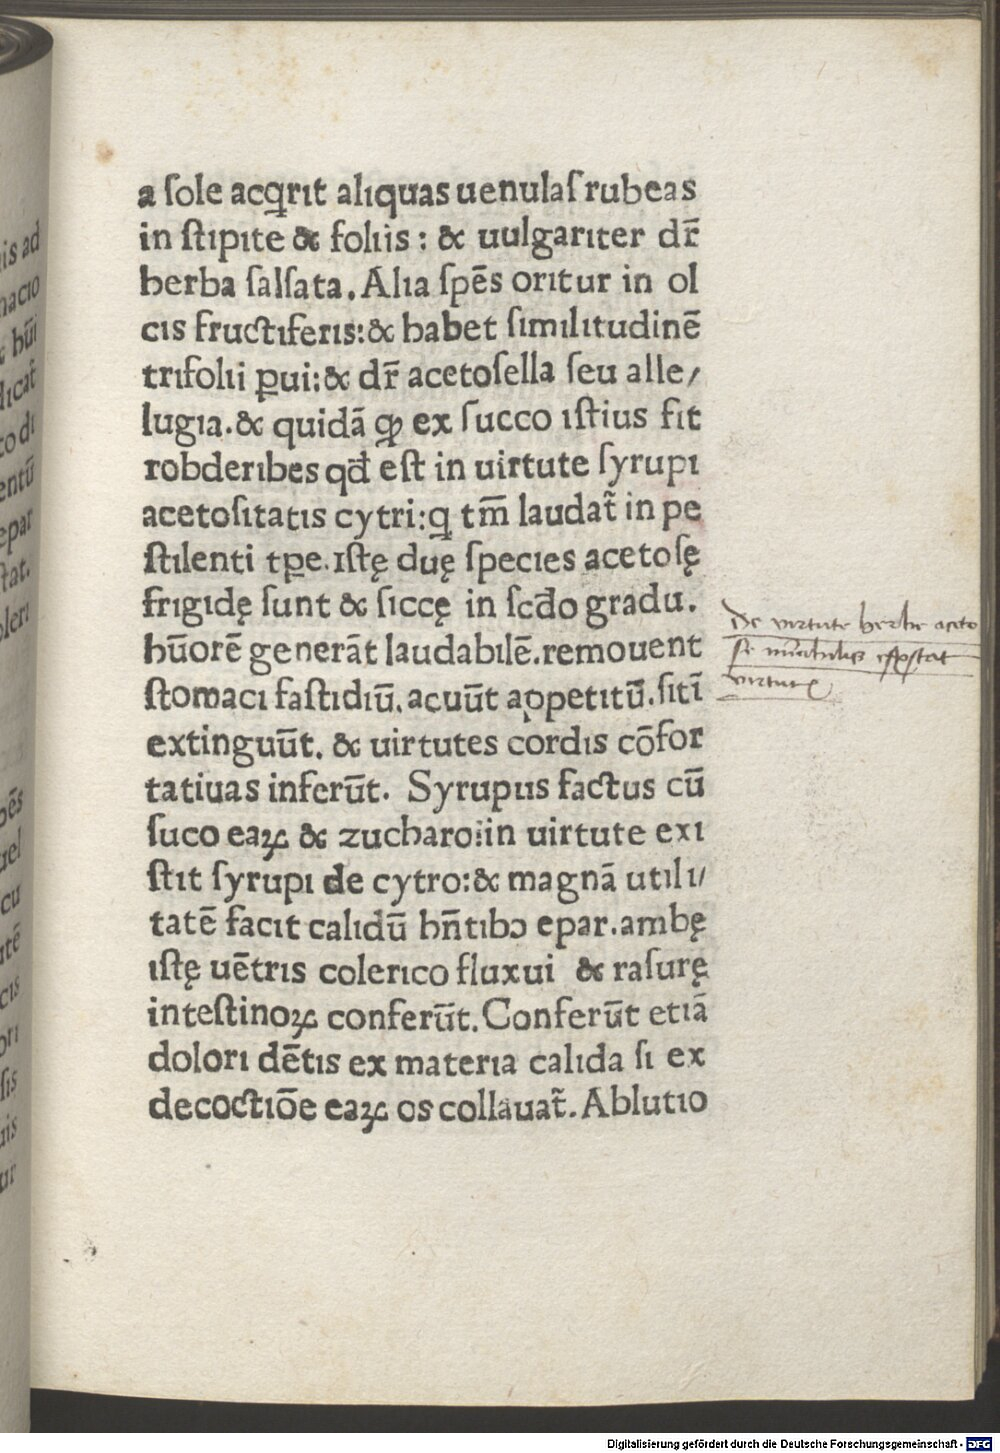 a ſole acꝗrit aliquas uenulaſ rubeas
in ſtipite & foliis : & uulgariter dr̄
herba ſalſata. Alia ſpēs oritur in ol
cis fructiferis:& habet ſimilitudinē
trifolii ꝑui:& dr̄ acetoſella ſeu alle/
lugia.& quidā ꝙ ex ſucco iſtius fit
robderibes qd̄ eſt in uirtute ſyrupi
acetoſitatis cytri:ꝗ tm̄ laudat̄ in pe
ſtilenti tꝑe. iſtę duę ſpecies acetoſę
frigidę ſunt & ſiccę in ſcd̄o gradu.
hūorē generāt laudabilē.remouent
ſtomaci faſtidiū. acuūt appetitū. ſitī
extinguūt. & uirtutes cordis cōfor
tatiuas inferūt. Syrupus factus cū
ſuco eaꝝ & zucharo:in uirtute exi
ſtit ſyrupi de cytro:& magnā utili/
tatē facit calidū hn̄tibꝰ epar.ambę
iſtę uētris colerico fluxui & raſurę
inteſtinoꝝ conferūt. Conferūt etiā
dolori dētis ex materia calida ſi ex
decoctiōe eaꝝ os collauat̄. Ablutio
De virtute herbe aceto
se
is ad
macio
hūi
dicat̄
to di
entū
epar
ſtat.
oleri
pēs
uel
cu
atē
cis
ori
ſis
uis
ur
Digitalisierung gefördert durch die Deutsche Forschungsgemeinschaft - DFG